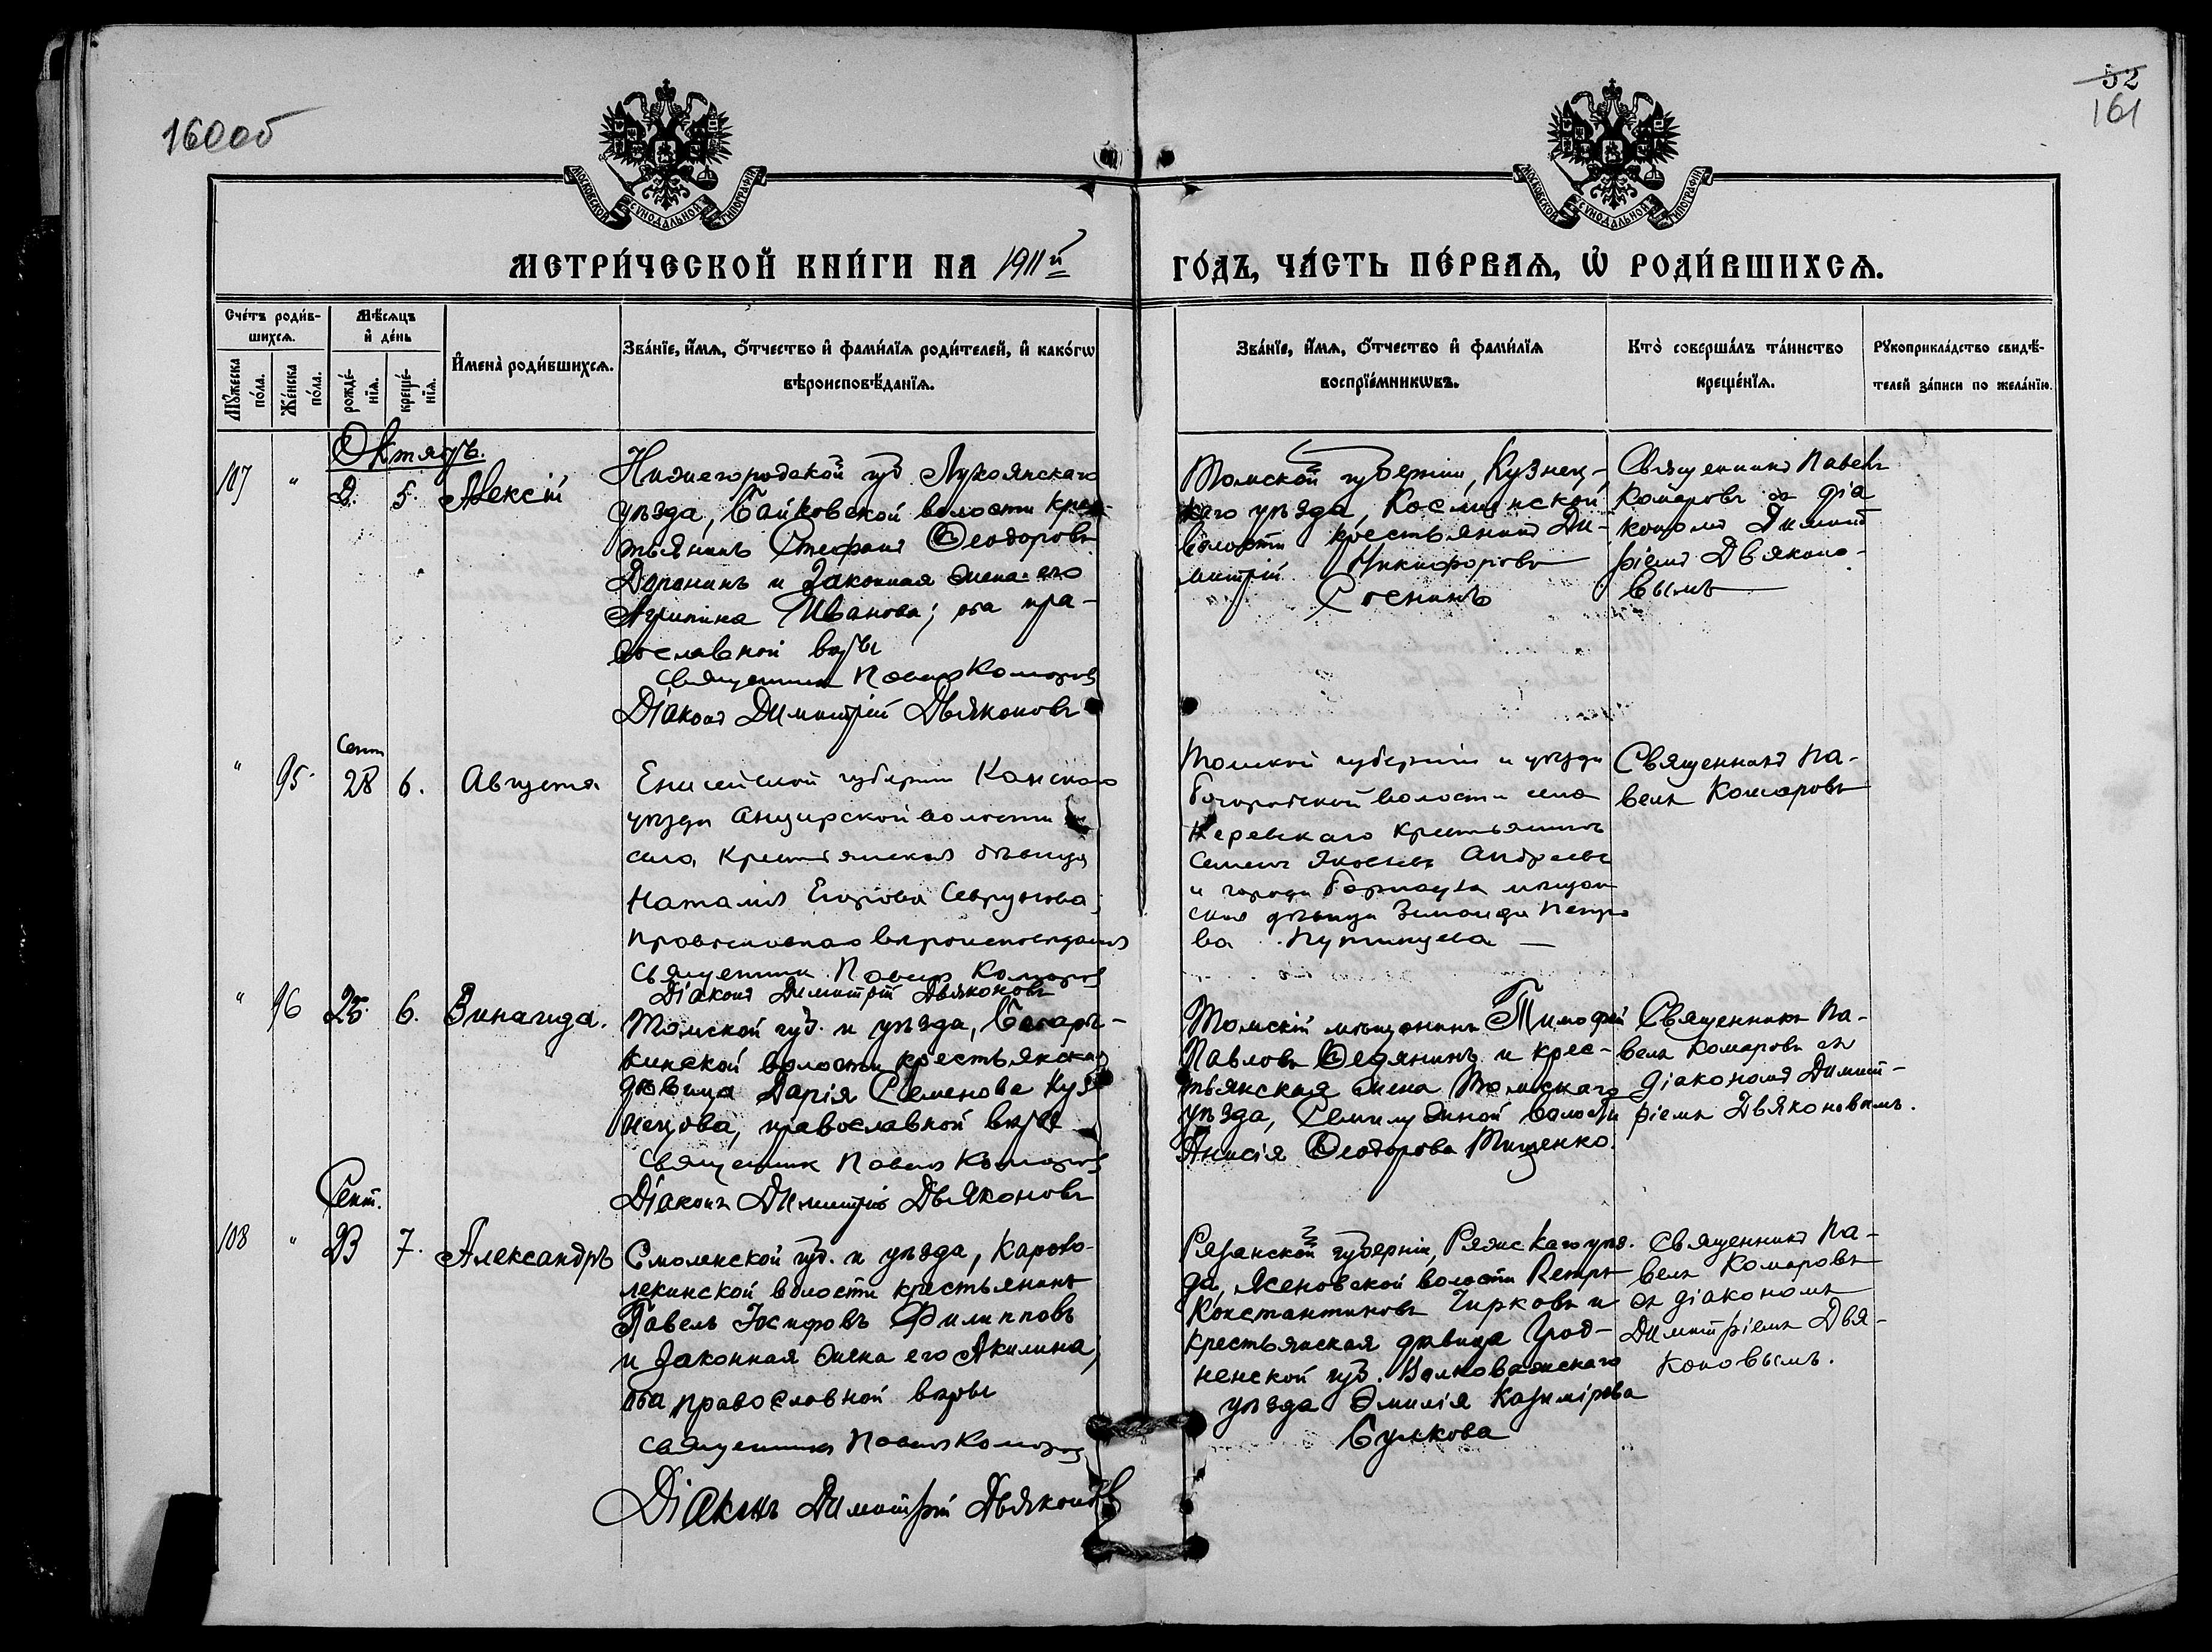 160об
52
161
МОСКОВСКОЙ СѴНОДАЛЬНОЙ ТИПОГРАФІИ
МОСКОВСКОЙ СѴНОДАЛЬНОЙ ТИПОГРАФІИ
МЕТРИ́ЧЕСКОЙ КНИ́ГИ НА 1911й
ГО́ДЪ, ЧА́СТЬ ПЕ́РВАѦ, Ѡ҆ РОДИ́ВШИХСѦ.
Сче́тъ роди́в-
шихсѧ.
Мꙋжеска по́ла.
Же́нска по́ла.
Мѣ́сѧцъ
и҆ де́нь
рожде́-
нїѧ.
креще́-
нїѧ.
И҆мена̀ роди́вшихсѧ.
Зва́нїе, и҆́мѧ, ѻ҆́тчество и҆ фами́лїѧ роди́телей, и҆ како́гѡ
вѣроисповѣ́данїѧ.
Зва́нїе, и҆́мѧ, ѻ҆́тчество и҆ фами́лїѧ
воспрїе́мникѡвъ.
Кто̀ соверша́лъ та́инство
креще́нїѧ.
Рꙋкоприкла́дство свидѣ́-
телей за́писи по жела́нїю.
Октябрь.
107 " 2. 5. Алексій
Нижегородской губ Лукоянскаго
уѣзда, Байковской волости крес-
тьянинъ Стефанъ Ѳеодоровъ
Доронинъ и законная жена его
Агрипина Иванова; оба пра-
вославной вѣры
Священникъ Павелъ Комаровъ
Діаконъ Димитрій Дьяконовъ
Томской губерніи, Кузнец-
каго уѣзда, Косминской
волости крестьянинъ Ди-
митрій Никифоровъ
Сосенинъ
Священникъ Павелъ
Комаровъ съ діа
кономъ Димит
ріемъ Дьяконо-
вымъ
Сент
" 95. 28 6. Августа
Енисейской губерніи Канскаго
уѣзда Анцирской волости
села, Крестьянская дѣвица
Наталія Егорова
православнаго вѣроисповѣданія
Священникъ Павелъ Комаровъ
Діаконъ Димитрій Дьяконовъ
Томской губерніи и уѣзда
Богородской волости села
крестьянинъ
Семенъ Яковлевъ Андреевъ
и города Барнаула мѣщан
ская дѣвица Зинаида Петро
ва Путинцева
Священникъ Па-
велъ Комаровъ
" 96 25. 6. Зинаида.
Томской губ. и уѣзда,
волости крестьянская
дѣвица Дарія Семенова Куз
нецова, православной вѣры
Священникъ Павелъ Комаровъ
Діаконъ Димитрій Дьяконовъ
Томскій мѣщанинъ Тимофей
Павловъ и крес-
тьянская жена Томскаго
уѣзда, Семилужной волости
Анисія Ѳеодорова Тищенко.
Священникъ Па-
велъ Комаровъ съ
діакономъ Димит-
ріемъ Дьяконовымъ.
Сент.
108 " 23 7. Александръ
Смоленской губ. и уѣзда,
волости крестьянинъ
Павелъ Іосифовъ Филипповъ
и законная жена его Акилина,
оба православной вѣры
Священникъ Павелъ Комаровъ
Діаконъ Димитрій Дьяконовъ
Рязанской губерніи, Ряжскаго уѣз.
да, Ясеновской волости Петръ
Константиновъ Чирковъ и
крестьянская дѣвица Грод-
ненской губ. Волковыжскаго
уѣзда Эмилія Казимірова
Булкова
Священникъ Па-
велъ Комаровъ
съ діакономъ
Димитріемъ Дья-
коновымъ.